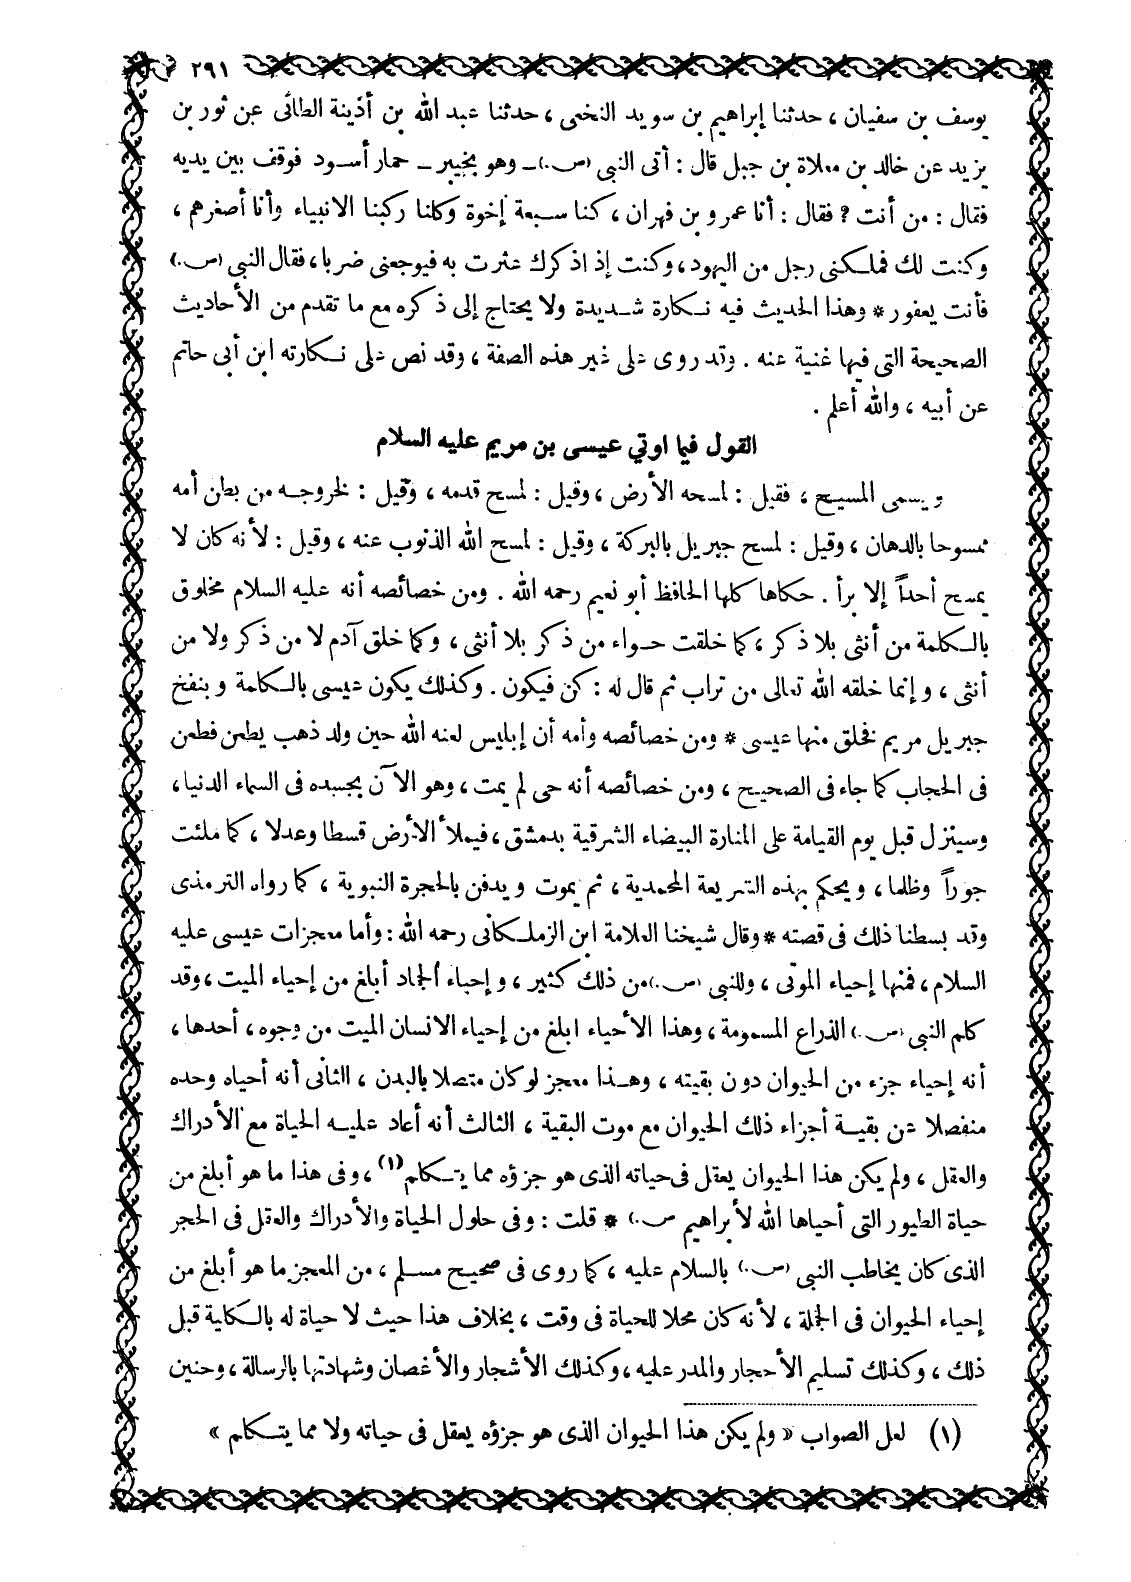 ٢٩١
يوسف بن سفيان ، حدثنا إبراهيم بن سويد النخعى ، حدثنا عبد الله بن أذينة الطائى عن ثور بن
يزيد عن خالد بن معلاة بن جبل قال : أتى النبى (ص.) ــ وهو بخيبر ــ حمار أسود فوقف بين يديه
فقال : من أنت ? فقال : أنا عمرو بن فهران ، كنا سبعة إخوة وكلنا ركبنا الانبياء وأنا أصغرهم ،
وكنت لك فملكنى رجل من اليهود ، وكنت إذ اذ كرك عثرت به فيوجعنى ضربا ، فقال النبى (ص.)
فأنت يعفور * وهذا الحديث فيه نكارة شديدة ولا يحتاج إلى ذكره مع ما تقدم من الأحاديث
الصحيحة التى فيها غنية عنه . وقد روى على غير هذه الصفة ، وقد نص على نكارته ابن أبى حاتم
عن أبيه ، والله أعلم .
القول فيما اوتي عيسى بن مريم عليه السلام
ويسمى المسيح ، فقيل : لمسحه الأرض ، وقيل : لمسح قدمه ، وقيل : لخروجه من بطن أمه
ممسوحا بالدهان ، وقيل : لمسح جبريل بالبركة ، وقيل : لمسح الله الذنوب عنه ، وقيل : لأنه كان لا
يمسح أحداً إلا برأ . حكاها كلها الحافظ أبو نعيم رحمه الله . ومن خصائصه أنه عليه السلام مخلوق
بالكلمة من أنثى بلا ذكر ، كما خلقت حواء من ذكر بلا أنثى ، وكما خلق آدم لا من ذكر ولا من
أنثى ، وإنما خلقه الله تعالى من تراب ثم قال له : كن فيكون . وكذلك يكون عيسى بالكلمة وبنفخ
جبريل مريم فخلق منها عيسى * ومن خصائصه وأمه أن إبليس لعنه الله حين ولد ذهب يطعن فطعن
فى الحجاب كما جاء فى الصحيح ، ومن خصائصه أنه حى لم يمت ، وهو الآن بجسده فى السماء الدنيا ،
وسينزل قبل يوم القيامة على المنارة البيضاء الشرقية بدمشق ، فيملأ الأرض قسطا وعدلا ، كما ملئت
جوراً وظلما ، ويحكم بهذه الشريعة المحمدية ، ثم يموت ويدفن بالحجرة النبوية ، كما رواه الترمذى
وقد بسطنا ذلك فى قصته * وقال شيخنا العلامة ابن الزملكانى رحمه الله : وأما معجزات عيسى عليه
السلام ، فمنها إحياء الموتى ، وللنبى (ص.) من ذلك كثير ، وإحياء الجماد أبلغ من إحياء الميت ، وقد
كلم النبى (ص.) الذراع المسمومة ، وهذا الأحياء ابلغ من إحياء الانسان الميت من وجوه ، أحدها ،
أنه إحياء جزء من الحيوان دون بقيته ، وهذا معجز لو كان متصلا بالبدن ، الثانى أنه أحياه وحده
منفصلا عن بقية أجزاء ذلك الحيوان مع موت البقية ، الثالث أنه أعاد عليه الحياة مع الأدراك
والعقل ، ولم يكن هذا الحيوان يعقل فى حياته الذى هو جزؤه مما يتكلم (١) ، وفى هذا ما هو أبلغ من
حياة الطيور التى أحياها الله لأبراهيم ص.) * قلت : وفى حلول الحياة والأدراك والعقل فى الحجر
الذى كان يخاطب النبى (ص.) بالسلام عليه ، كما روى فى صحيح مسلم ، من المعجز ما هو أبلغ من
إحياء الحيوان فى الجملة ، لأنه كان محلا للحياة فى وقت ، بخلاف هذا حيث لا حياة له بالكلية قبل
ذلك ، وكذلك تسليم الأحجار والمدر عليه ، وكذلك الأشجار والأغصان وشهادتها بالرسالة ، وحنين
(١) لعل الصواب « ولم يكن هذا الحيوان الذى هو جزؤه يعقل فى حياته ولا مما يتكلم »